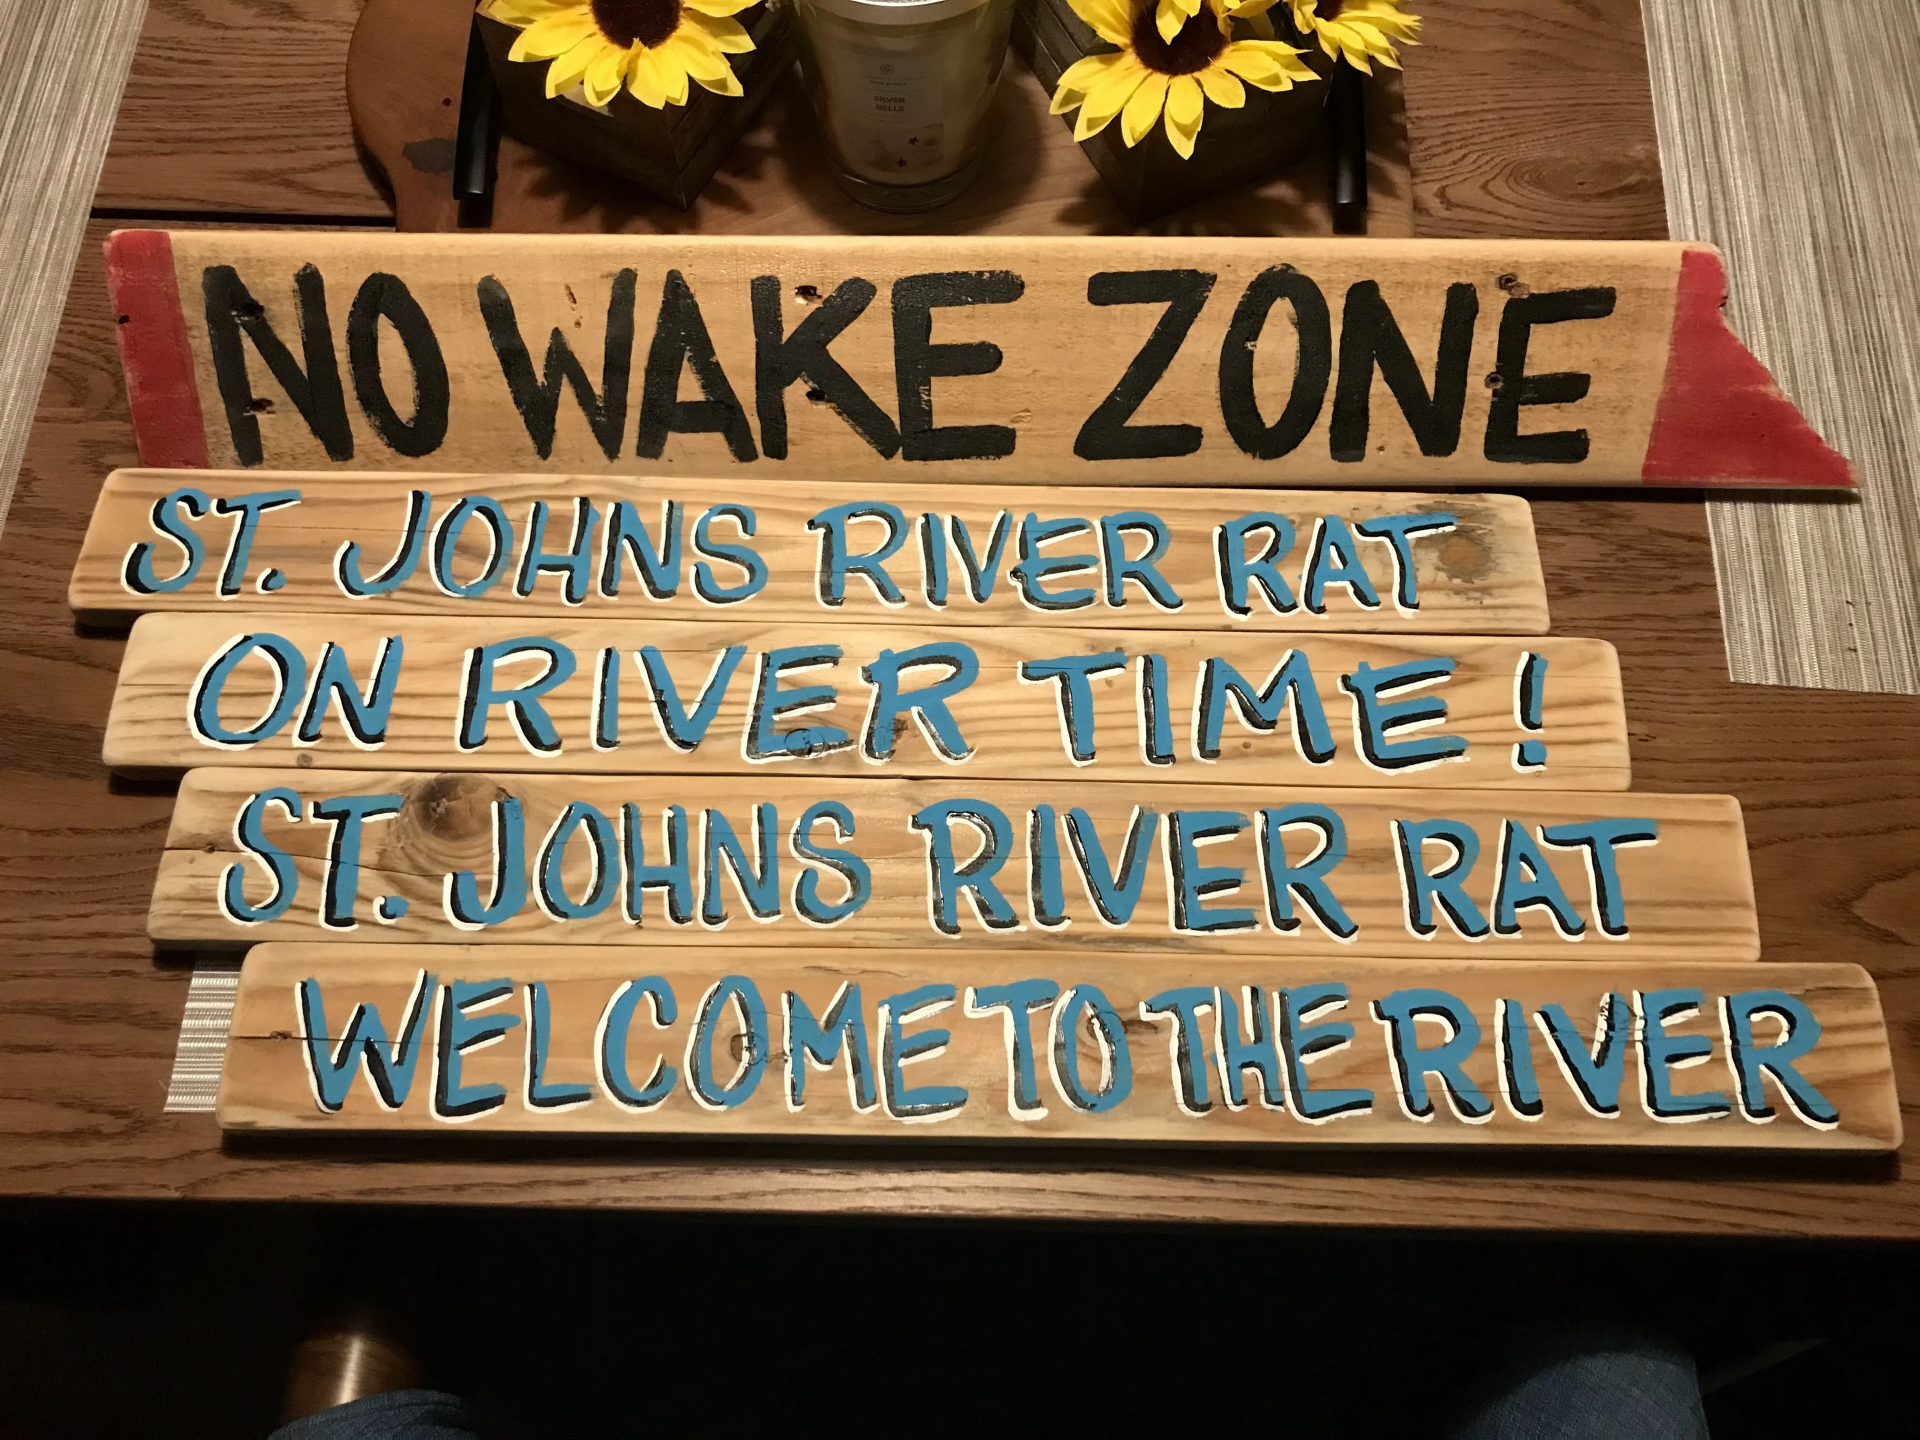 SILVER
BELLS
NO WAKE ZONE
ST. JOHNS RIVER RAT
ON RIVER TIME!
ST. JOHNS RIVER RAT
WELCOME TO THE RIVER